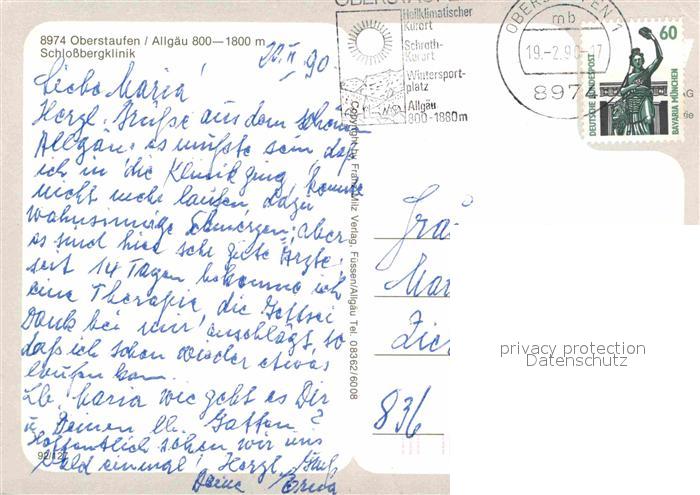 8974 Oberstaufen / Allgäu 800—1800 m
Schloßbergklinik
20.II 90
Liebe Maria!
Herzl. Grüße aus dem schönen
Allgäu. es mußte sein daß
ich in die Klinik ging, konnte
nicht mehr laufen dazu
wahnsinnige Schmerzen, aber
es sind hier sehr gute Ärzte,
seit 14 Tagen bekomme ich
eine Therapie, die Gottsei
Dank bei mir anschlägt, so
daß ich schon wieder etwas
laufen kann.
Lb. Maria wie geht es Dir
u. Deinem lb. Gatten?
Hoffentlich sehen wir uns
bald einmal! Herzl. Gruß
Deine Erna
92/127
Copyright by Franz Milz Verlag, Füssen/Allgäu Tel. 08362/6008
OBERSTAUFEN
Heilklimatischer
Kurort
Schroth-
Kurort
Wintersport-
platz
Allgäu
800-1880m
OBERSTAUFEN 1
mb
19.-2.90-17
8974
60
DEUTSCHE BUNDESPOST
BAVARIA MÜNCHEN
AG
836
privacy protection
Datenschutz